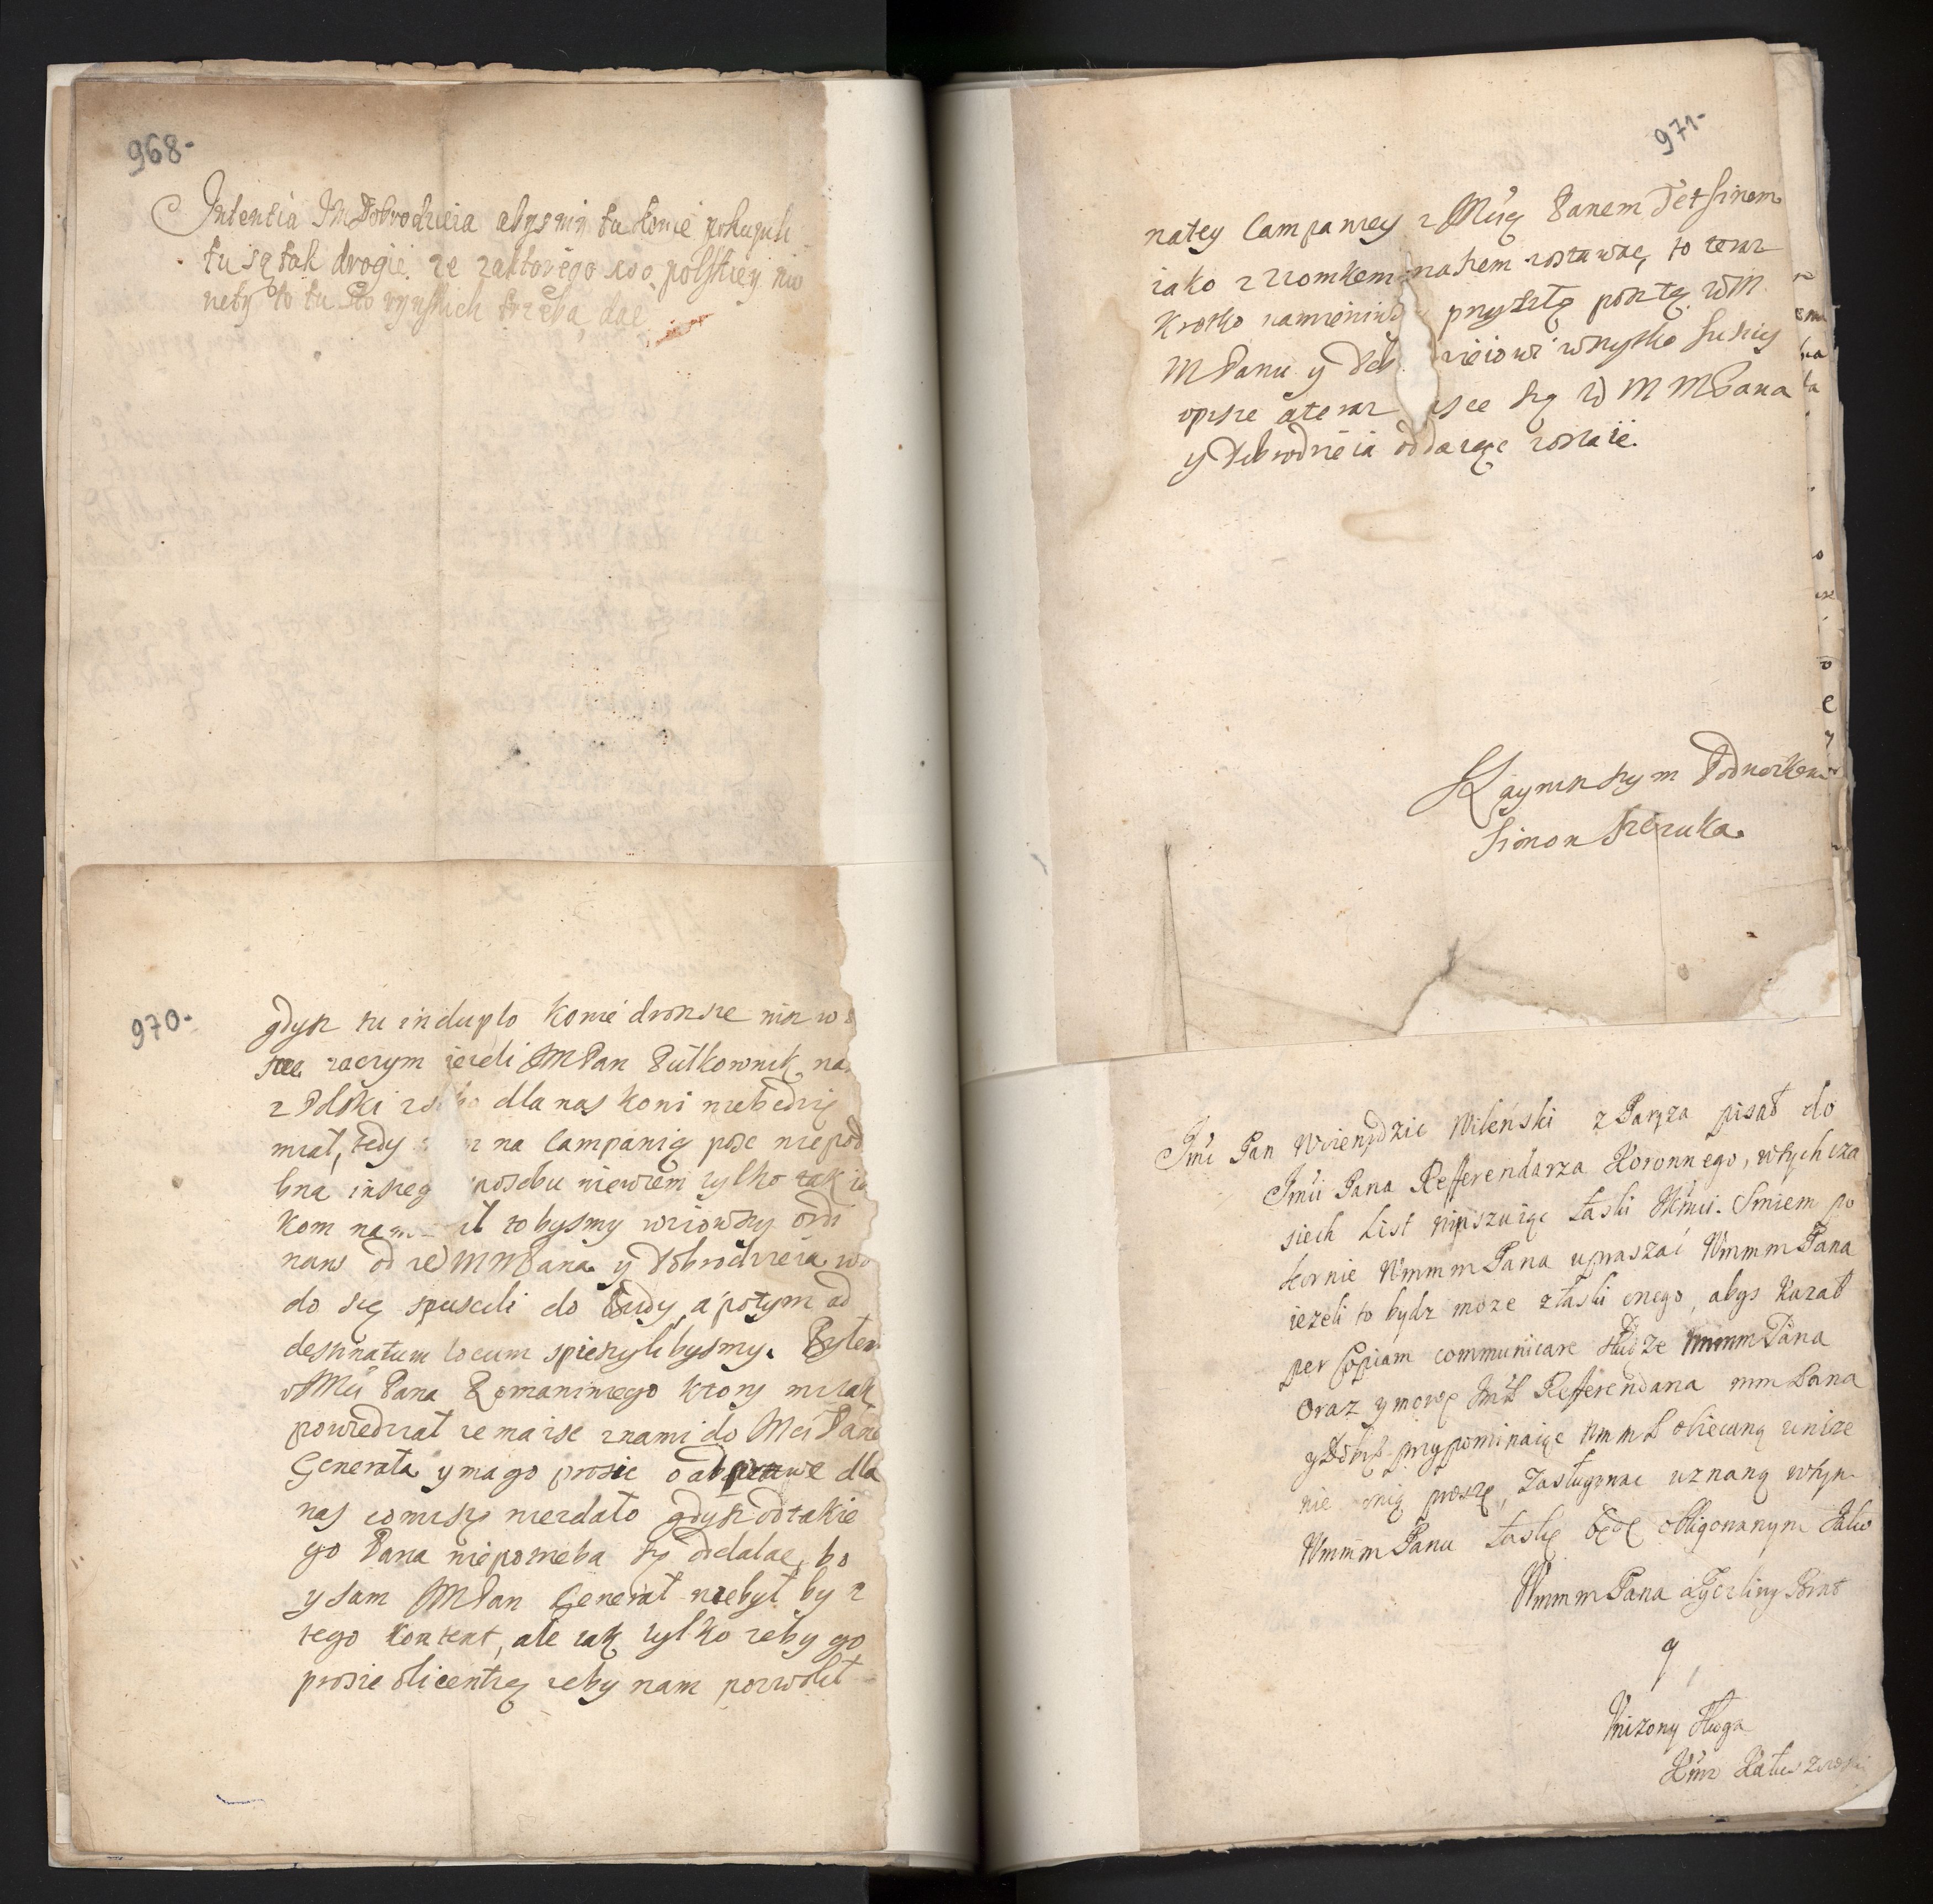 968-
Intentia JM Dobrodzieia abysmy tu konie pokupili
tu są tak drogie, ze zaktorego sto polskiey mo
nety to tu sto rynskich trzeba dac
970-
gdysz tu in duplo konie dronsze nisz w
zaczym iezeli JMPan Pułkownik na
z Polski dla nas koni niebędzie
miał, tedy na Campanią pose niepod
bna inszeg sposobu niewiem tylko tak ia
kom na to bysmy wziowszy ordi
nans od WMMPana y Dobrodzieia wo
do się spuscili do Budy, a potym ad
destinatum locum spieszylibysmy. Byłem
v JMci Pana Romaniniego ktory mi tak
powiedział ze ma isc znami do JMci Pana
Generała y ma go prosic o abprawe dla
nas co mi się niezdało gdysz od takie
go Pana niepotrzeba się oddalac, bo
y sam JMPan Generał niebył by z
tego kontent, ale tak tylko zeby go
prosic o licentią zeby nam pozwolił
971-
natey Campaniey z JMcią Panem Tetsinem
iako z ziomkem naszem zostawac, to teraz
krotko namieniwszy przyszłą posztą WM
MPanu y Dob dzieiowi wszystko szyrzey
opisze a teraz się WMMPana
y Dobrodzieia oddaiąc zostaie.
Nayniszszym Podnoszkiem
Simon
Jmć Pan Woiewodzic Wileński z Paryza pisał do
Jmći Pana Refferendarza Koronnego, wtych cza
siech List łaski Jkmći. Smiem po
kornie WmmmPana upraszać WmmmPana
iezeli to bydz moze złaski onego, abys kazał
per Copiam communicare słudze WmmmPana
oraz y mowę JmP Refferendarza mmPana
y Dobr przypominaiąc WmmP obiecaną unize
nie onię proszę, zasługowac uznaną wtym
WmmmPanu łaskę będę obligowanym iako
WmmmPana zyczliwy Brat
y
Unizony sługa